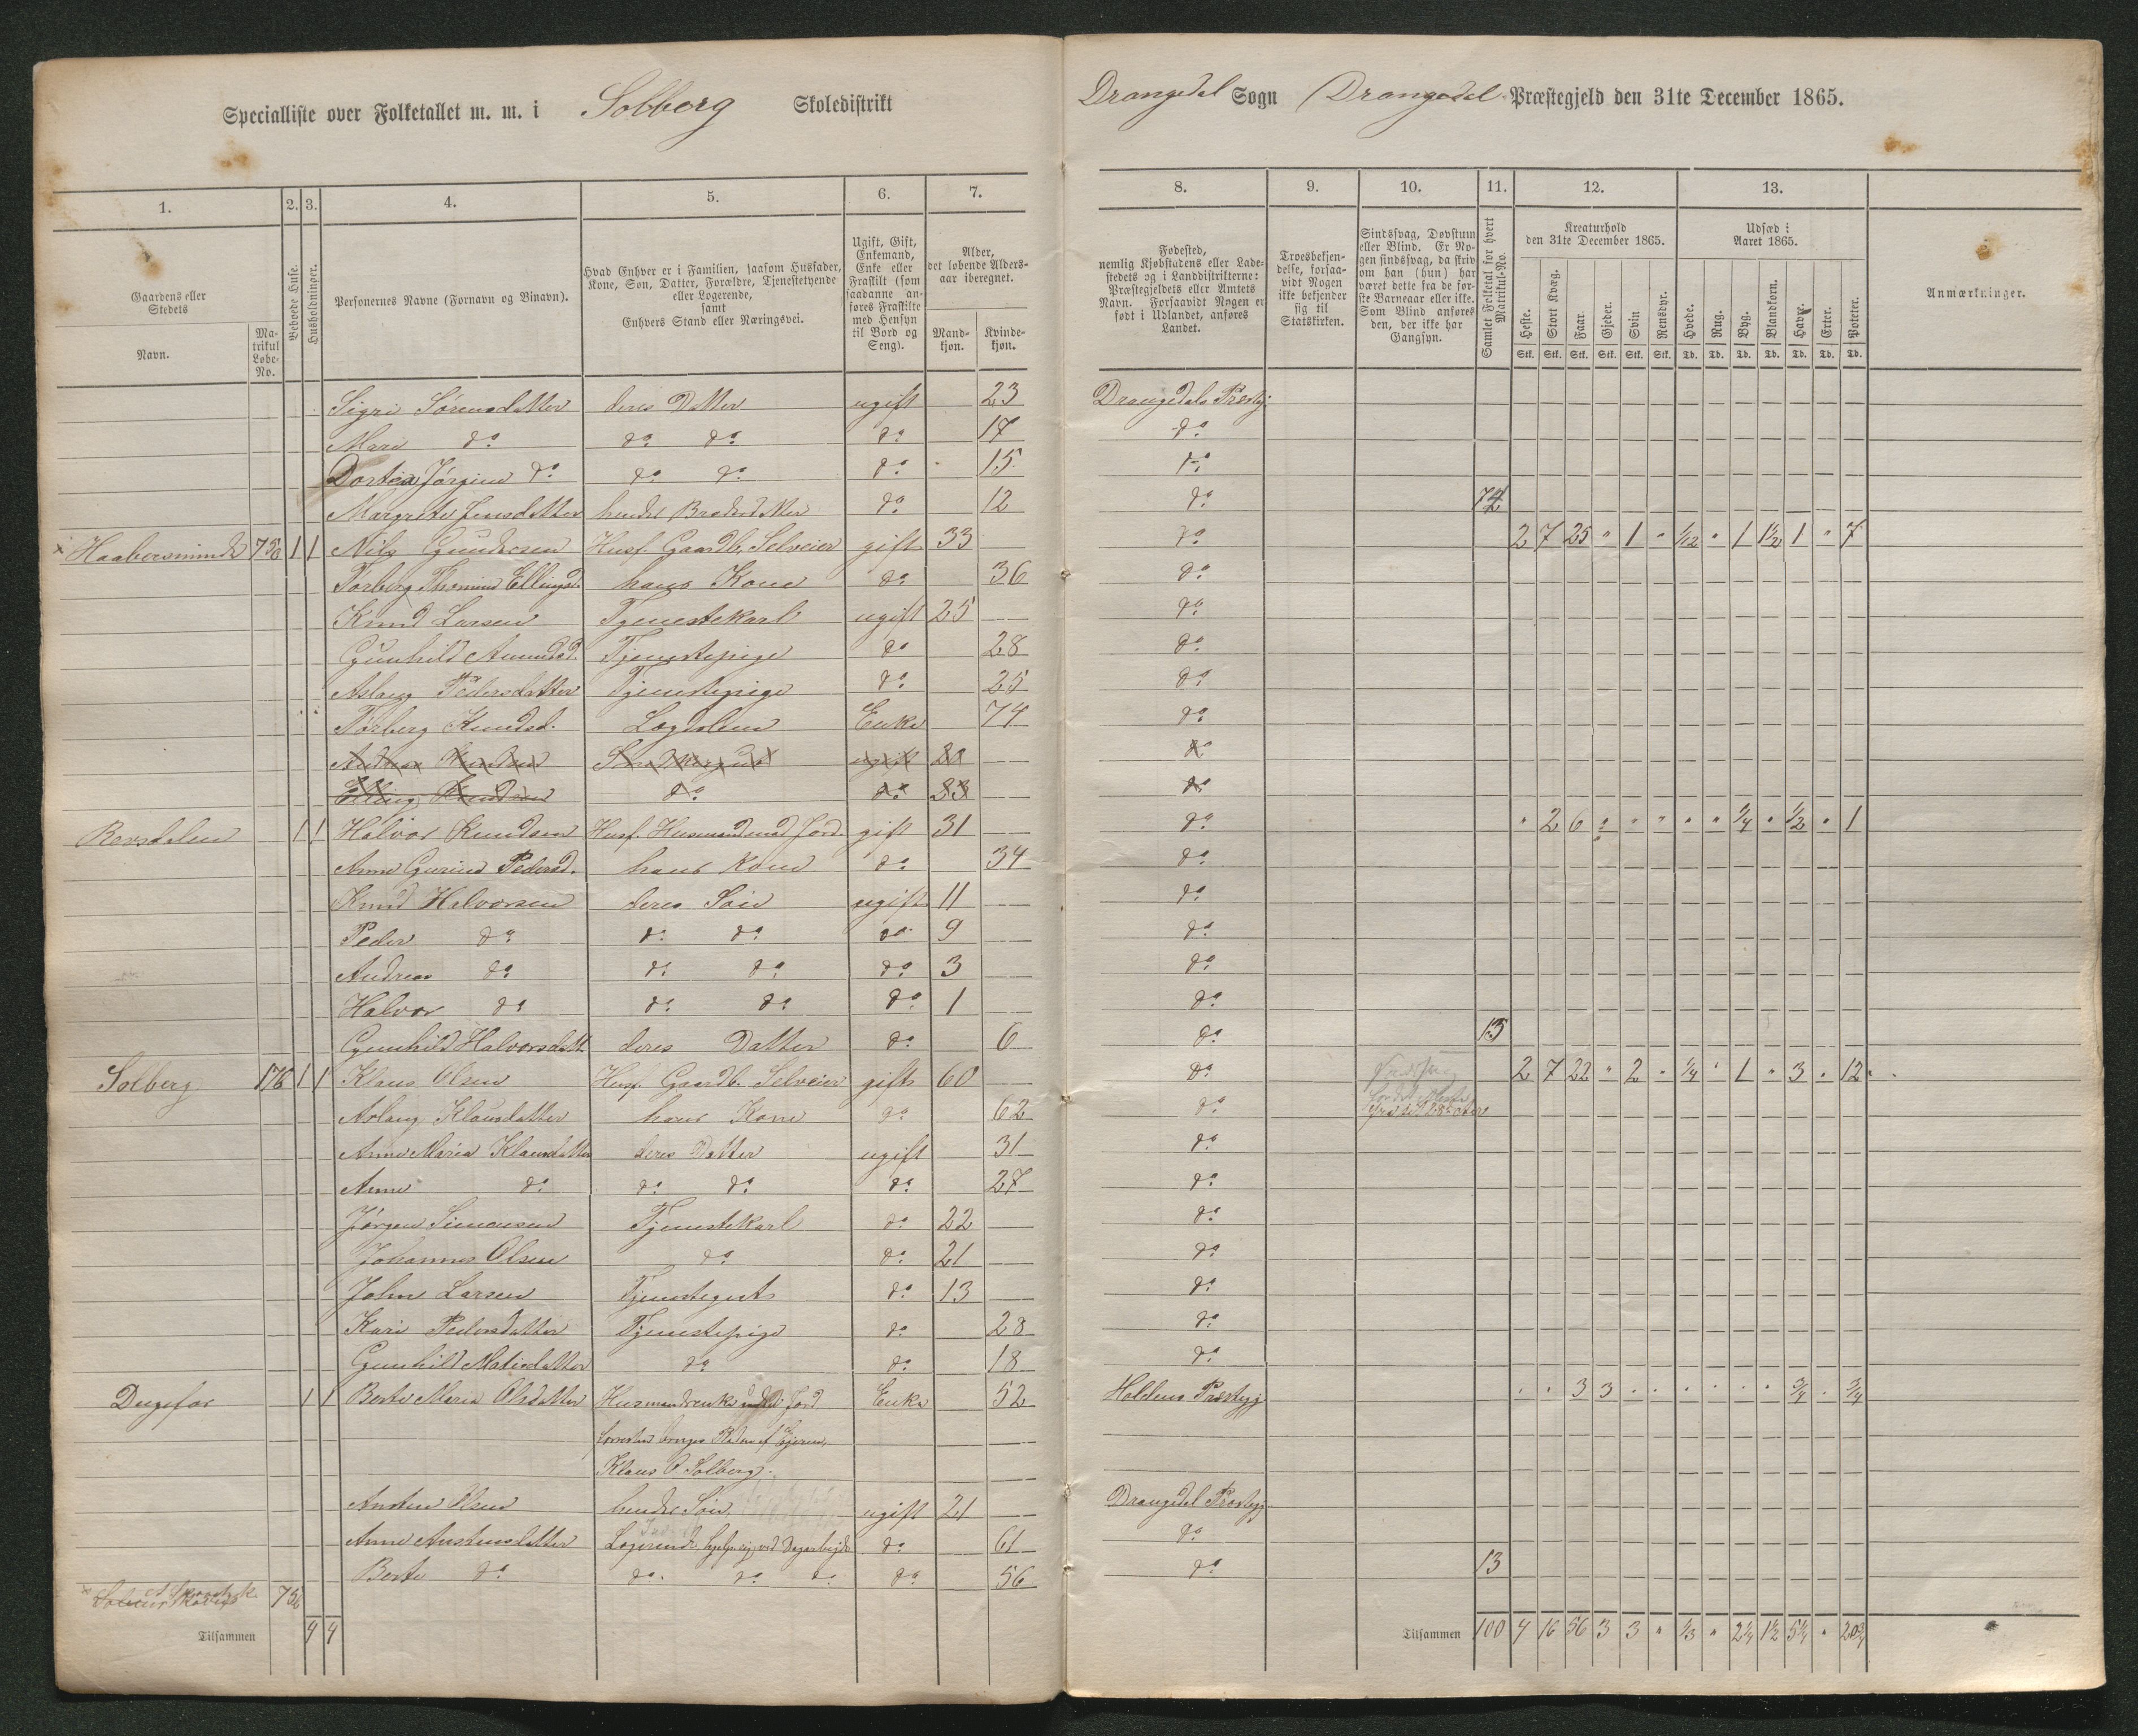 Specialliste over Folketallet m. m. i Solberg Skoledistrikt Drangedal Sogn Drangedal Præstegjeld den 31te December 1865.
1. 2. 3. 4. 5. 6. 7. 8. 9. 10. 11. 12. 13.
Gaardens eller Stedets
Navn.
Matrikul Løbe-No.
Beboede Huse.
Husholdninger.
Personernes Navne (Fornavn og Binavn).
Hvad Enhver er i Familien, saasom Husfader, Kone, Søn, Datter, Forældre, Tjenestetyende eller Logerende, samt Enhvers Stand eller Næringsvei.
Ugift, Gift, Enkemand, Enke eller Fraskilt (som saadanne anføres Fraskilte med Hensyn til Bord og Seng).
Alder, det løbende Alders-aar iberegnet.
Mandkjøn. Kvindekjøn.
Fødested, nemlig Kjøbstadens eller Ladestedets og i Landdistrikterne: Præstegjeldets eller Amtets Navn. Forsaavidt Nogen er født i Udlandet, anføres Landet.
Troesbekjendelse, forsaavidt Nogen ikke bekjender sig til Statskirken.
Sindssvag, Døvstum eller Blind. Er Nogen sindssvag, da skriv om han (hun) har været dette fra de første Barneaar eller ikke. Som Blind anføres den, der ikke har Gangsyn.
Samlet Folketal for hvert Matrikul-No.
Kreaturhold den 31te December 1865.
Heste. Stort Kvæg. Faar. Gjeder. Svin Rensdyr.
Stk. Stk. Stk. Stk. Stk. Stk.
Udsæd i Aaret 1865.
Hvede. Rug. Byg. Blandkorn. Havre. Erter. Poteter.
Td. Td. Td. Td. Td. Td. Td.
Anmærkninger.
Sigri Sørensdatter deres Datter ugift 23 Drangedals Præstgj.
Mari do do do do 17 do
Dortea Jørgine do do do do 15 do
Margrete Jensdatter hendes Broderdatter do 12 do 74
Haabersminde 75a 1 1 Nils Gundersen Husf. Gaardb. Selveier gift 33 do 2 7 25 " 1 " 1/12 " 1 1½ 1 " 7
Torberg Thomine Ellingsd. hans Kone do 36 do
Knud Larsen Tjenestekarl ugift 25 do
Gunhild Amundsd. Tjenestepige do 28 do
Aslaug Pedersdatter Tjenestepige do 25 do
Torberg Knudsd. Enke 74 do
do
Elling Knudsen do do 23 do
1 1 Halvor Knudsen Husf. Husmand med Jord gift 31 do " 2 6 " " " " " ¼ " ½ " 1
Anne Gurine Pedersd. hans Kone do 34 do
Knud Halvorsen deres Søn ugift 11 do
Peder do do do do 9 do
Andreas do do do do 3 do
Halvor do do do do 1 do
Gunhild Halvorsdatt. deres Datter do 6 do 13
Solberg 176 1 1 Klaus Olsen Husf. Gaardb. Selveier gift 60 do 2 7 22 " 2 " ¼ " 1 " 3 " 12
Aslaug Klausdatter hans Kone do 62 do
Anne Maria Klausdatter deres Datter ugift 31 do
Anne do do do do 27 do
Jørgen Simonsen Tjenestekarl do 22 do
Johannes Olsen do do 21 do
John Larsen Tjenestegut do 13 do
Kari Pedersdatter Tjenestepige do 28 do
Gunhild Matisdatter do do 18 do
Dugefos 1 1 Berte Maria Olsdatter Husmandsenke Jord Enke 52 Holdens Præstegj " " 3 3 " " " " " " ¾ " ¾
Klaus O. Solberg.
Austen Olsen hendes Søn ugift 21 Drangedal Præstegj
Anne Austensdatter Logerende, hjelper sig ved Dagarbeide do 61 do
Berte do do do do do 56 do 13
75b
Tilsammen 4 4 Tilsammen 100 4 16 56 3 3 " 1/3 " 2¼ 1½ 5¼ " 20¾